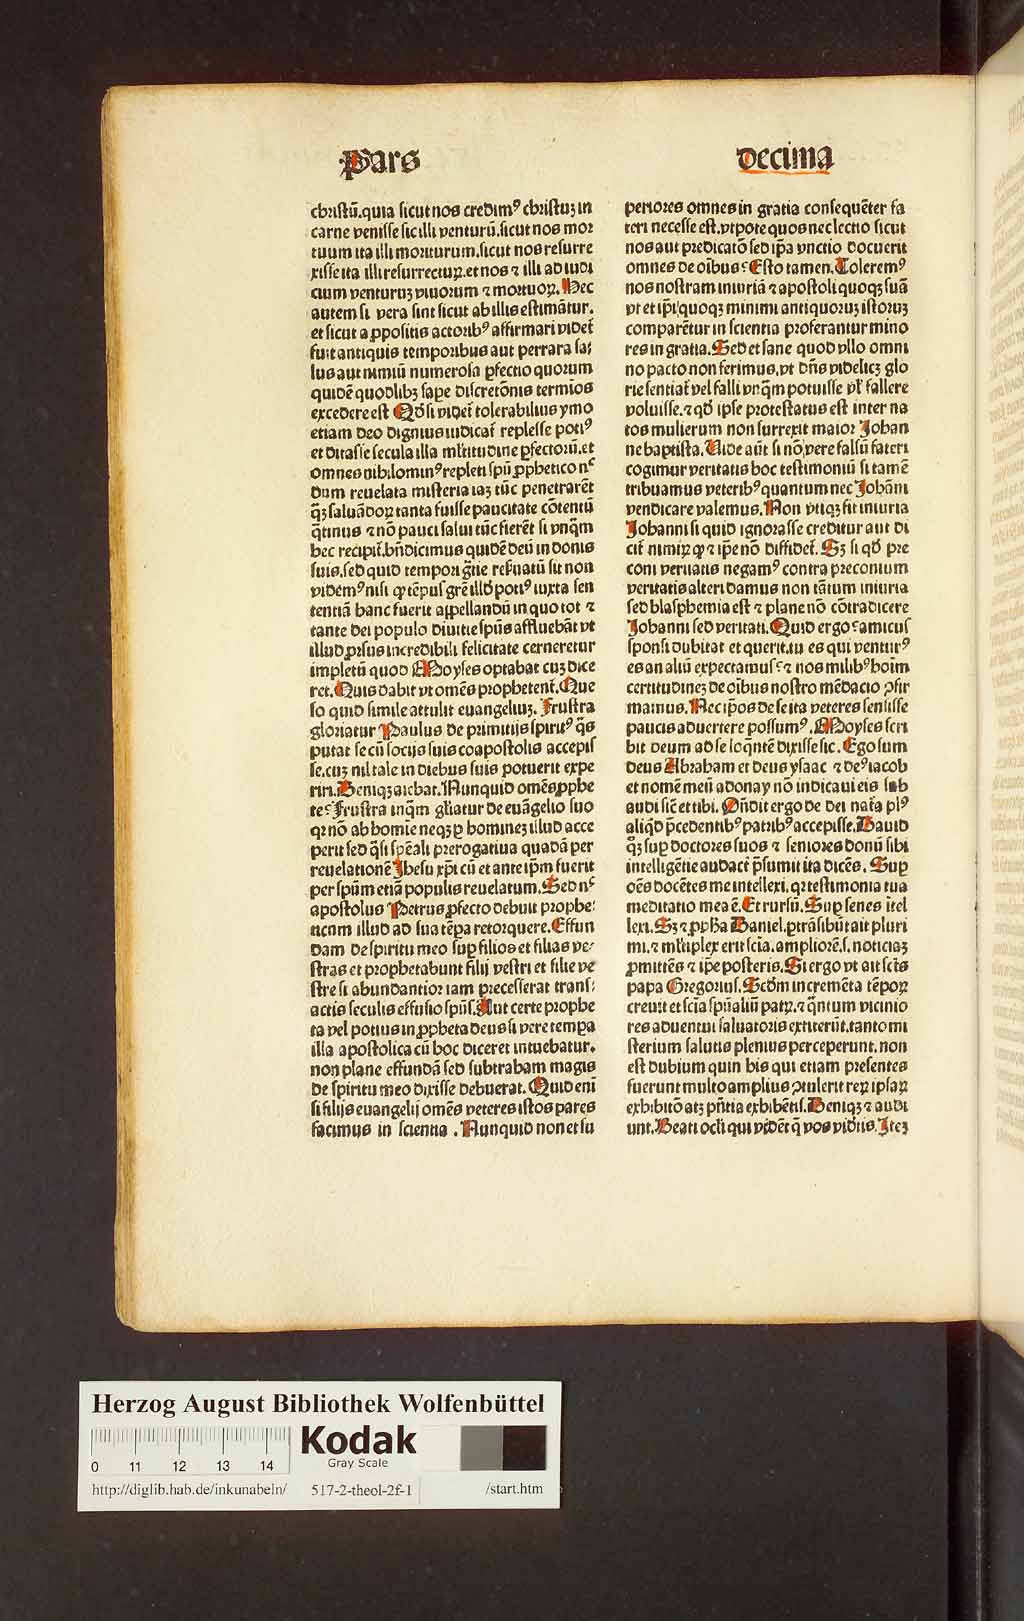 Pars
Decima
christū.quia sicut nos credimꝰ christuꝫ in
carne venisse sic illi venturū.sicut nos mor
tuum ita illi moriturum.sicut nos resurre
xisse ita illi resurrecturꝫ.et nos ⁊ illi ad iudi
cium venturuꝫ viuorum ⁊ mortuoꝝ. Hec
autem si vera sint sicut ab illis estimātur.
et sicut a ꝓpositis actoribꝰ affirmari videt̄
fuit antiquis temporibus aut perrara sa⸗
lus aut nimiū numerosa ꝑfectio quorum
quidē quodlibꝫ sape discretōnis termīos
excedere est Qd̓ si videt̄ tolerabilius ymo
etiam deo dignius iudicat̄ replesse potiꝰ
et ditasse secula illa ml̓titudine ꝑfectorū.et
omnes nihilominꝰ repleti spū ꝓphetico nᶜ
dum reuelata misteria iaꝫ tūc penetrarēt
qꝫ̄ saluādoꝝ tanta fuisse paucitate cōtentū
q̄tinus ⁊ nō pauci salui tūc fierēt si vnq̄m
hec recipit̄.bn̄dicimus quidē deū in donis
suis.sed quid tempori gr̄ne res̄uatū sit non
videmꝰ nisi ꝙ tēpus gr̄e illd̓ potiꝰ iuxta sen
tentiā hanc fuerit appellandū in quo tot ⁊
tante dei populo diuitie spūs affluebāt vt
illud ꝓrsus incredibili felicitate cerneretur
impletū quod Moyses optabat cuꝫ dice
ret.Quis dabit vt omēs prophetent̄.Que
so quid simile attulit euangeliuꝫ. Frustra
gloriatur Paulus de primitijs spiritꝰ q̄s
putat se cū socijs suis coapostolis accepis
se.cuꝫ nil tale in diebus suis potuerit expe
riri.Deniqꝫ aiebat.Nunquid omēs ꝓphe
teᶜ Frustra inq̄m gl̓iatur de euāgelio suo
qꝛ nō ab homīe neqꝫ ꝑ hominez illud acce
perit sed q̄si spēali prerogatiua quadā per
reuelationē Jhesu xp̄i cū et ante ip̄m fuerit
per spūm etiā populis reuelatum.Sed nᶜ
apostolus Petrus ꝓfecto debuit prophe⸗
ticam illud ad sua tēpa retorquere.Effun
dam de spiritu meo suꝑ filios et filias ve⸗
stras et prophetabunt filij vestri et filie ve
stre si abundantior iam precesserat trans⸗
actis seculis effusio spūs.Aut certe prophe
ta vel potius in ꝓpheta deus si vere tempa
illa apostolica cū hoc diceret intuebatur.
non plane effundā sed subtraham magis
de spiritu meo dixisse debuerat. Quid enī
si filijs euangelij omēs veteres istos pares
facimus in scientia . Nunquid non et su
periores omnes in gratia consequēter fa
teri necesse est.vtpote quos nec lectio sicut
nos aut predicatō sed ip̄a vnctio docuerit
omnes de oībusᶜ Esto tamen.Toleremꝰ
nos nostram iniuriā ⁊ apostoli quoqꝫ suā
vt et ip̄i quoqꝫ minimi antiquoruꝫ istoruꝫ
comparētur in scientia proferantur mino
res in gratia.Sed et sane quod vllo omni
no pacto non ferimus.vt dn̄s videlicꝫ glo
rie sentiat̄ vel falli vnq̄m potuisse vl̓ fallere
voluisse.⁊ qd̓ ipse protestatus est inter na
tos mulierum non surrexit maior Johan
ne baptista.Vide aūt si nō vere falsū fateri
cogimur veritatis hoc testimoniū si tamē
tribuamus veteribꝰ quantum nec Johāni
vendicare valemus.Non vtiqꝫ fit iniuria
Johanni si quid ignorasse creditur aut di
cit̄ nimiꝝ ꝙ ⁊ ip̄e nō diffidet̄. Sꝫ si qd̓ pre
coni veritatis negamꝰ contra preconium
veritatis alteri damus non tātum iniuria
sed blasphemia est ⁊ plane nō cōtradicere
Johanni sed veritati.Quid ergoᶜ amicus
sponsi dubitat et querit.tu es qui venturꝰ
es an aliū expectamusᶜ ⁊ nos milibꝰ hoīm
certitudinez de oībus nostro mēdacio ꝯfir
mamus.Accip̄os de se ita veteres sensisse
paucis aduertere possumꝰ. Moyses scri
bit deum ad se loq̄ntē dixisse sic. Ego sum
deus Abraham et deus ysaac ⁊ deꝰ iacob
et nomē meū adonay nō indicaui eis sub
audi sic̄ et tibi. On̄dit ergo de dei nat̄a plꝰ
aliqd̓ p̄cedentibꝰ patribꝰ accepisse.Dauid
qꝫ̄ suꝑ doctores suos ⁊ seniores donū sibi
intelligētie audacꝭ p̄sumit ita dicēs. Suꝑ
oēs docētes me intellexi.qꝛ testimonia tua
meditatio mea ē.Et rursū.Suꝑ senes ītel
lexi.Sꝫ ⁊ ꝓpħa Daniel.ꝑtrāsibūt ait pluri
mi.⁊ ml̓tiplex erit scīa.ampliorē.s.noticiaꝫ
ꝓmittēs ⁊ ip̄e posteris.Si ergo vt ait sct̄s
papa Gregorius.Scd̓m incremēta tēpoꝝ
creuit et scīa spūaliū patꝝ.⁊ q̄ntum vicinio
res aduentui saluatoris extiterūt.tanto mi
sterium salutis plenius perceperunt.non
est dubium quin his qui etiam presentes
fuerunt multo amplius ꝯtulerit reꝝ ipsaꝝ
exhibitō atqꝫ pn̄tia exhibētis.Deniqꝫ ⁊ audi
unt.Beati ocl̓i qui vidēt q̄ vos videtis.Iteꝫ
Herzog August Bibliothek Wolfenbüttel
0 11 12 13 14
Kodak
Gray Scale
http://diglib.hab.de/inkunabeln/ 517-2-theol-2f-1 /start.htm